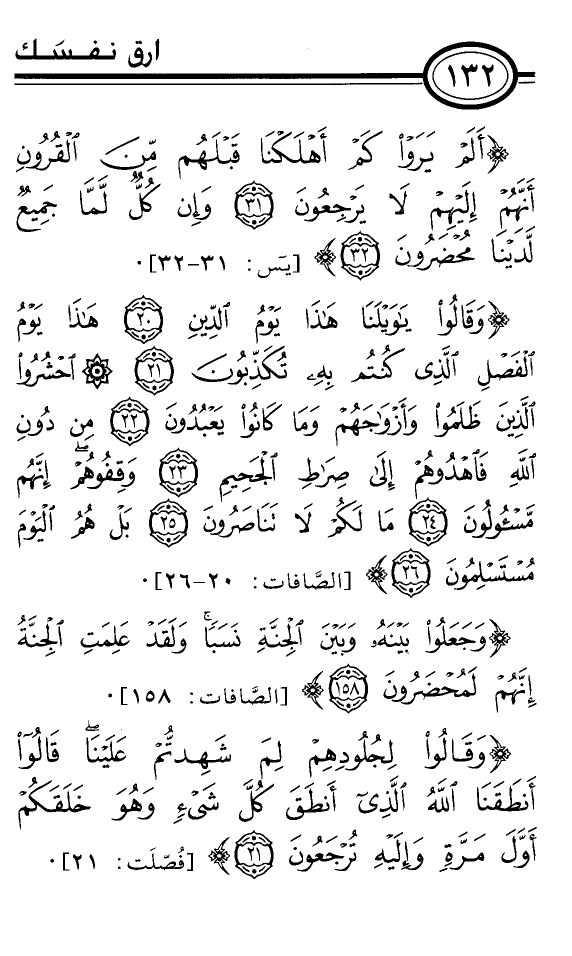 ١٣٢ ارق نـفـسـك
﴿أَلَمْ يَرَوْا۟ كَمْ أَهْلَكْنَا قَبْلَهُم مِّنَ ٱلْقُرُونِ
أَنَّهُمْ إِلَيْهِمْ لَا يَرْجِعُونَ ٣١ وَإِن كُلٌّ لَّمَّا جَمِيعٌ
لَّدَيْنَا مُحْضَرُونَ ٣٢﴾ [يس: ٣١-٣٢].
﴿وَقَالُوا۟ يَـٰوَيْلَنَا هَـٰذَا يَوْمُ ٱلدِّينِ ٢٠ هَـٰذَا يَوْمُ
ٱلْفَصْلِ ٱلَّذِى كُنتُم بِهِۦ تُكَذِّبُونَ ٢١ ۞ ٱحْشُرُوا۟
ٱلَّذِينَ ظَلَمُوا۟ وَأَزْوَٰجَهُمْ وَمَا كَانُوا۟ يَعْبُدُونَ ٢٢ مِن دُونِ
ٱللَّهِ فَٱهْدُوهُمْ إِلَىٰ صِرَٰطِ ٱلْجَحِيمِ ٢٣ وَقِفُوهُمْ ۖ إِنَّهُم
مَّسْـُٔولُونَ ٢٤ مَا لَكُمْ لَا تَنَاصَرُونَ ٢٥ بَلْ هُمُ ٱلْيَوْمَ
مُسْتَسْلِمُونَ ٢٦﴾ [الصَّافات: ٢٠-٢٦].
﴿وَجَعَلُوا۟ بَيْنَهُۥ وَبَيْنَ ٱلْجِنَّةِ نَسَبًا ۚ وَلَقَدْ عَلِمَتِ ٱلْجِنَّةُ
إِنَّهُمْ لَمُحْضَرُونَ ١٥٨﴾ [الصَّافات: ١٥٨].
﴿وَقَالُوا۟ لِجُلُودِهِمْ لِمَ شَهِدتُّمْ عَلَيْنَا ۖ قَالُوٓا۟
أَنطَقَنَا ٱللَّهُ ٱلَّذِىٓ أَنطَقَ كُلَّ شَىْءٍ وَهُوَ خَلَقَكُمْ
أَوَّلَ مَرَّةٍ وَإِلَيْهِ تُرْجَعُونَ ٢١﴾ [فُصِّلَت: ٢١].